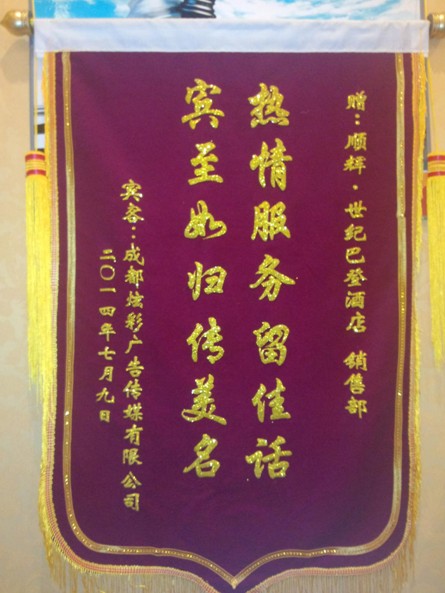 赠：顺辉·世纪巴登酒店 销售部
热情服务留佳话
宾至如归传美名
宾客：成都炫彩广告传媒有限公司
二〇一四年七月九日